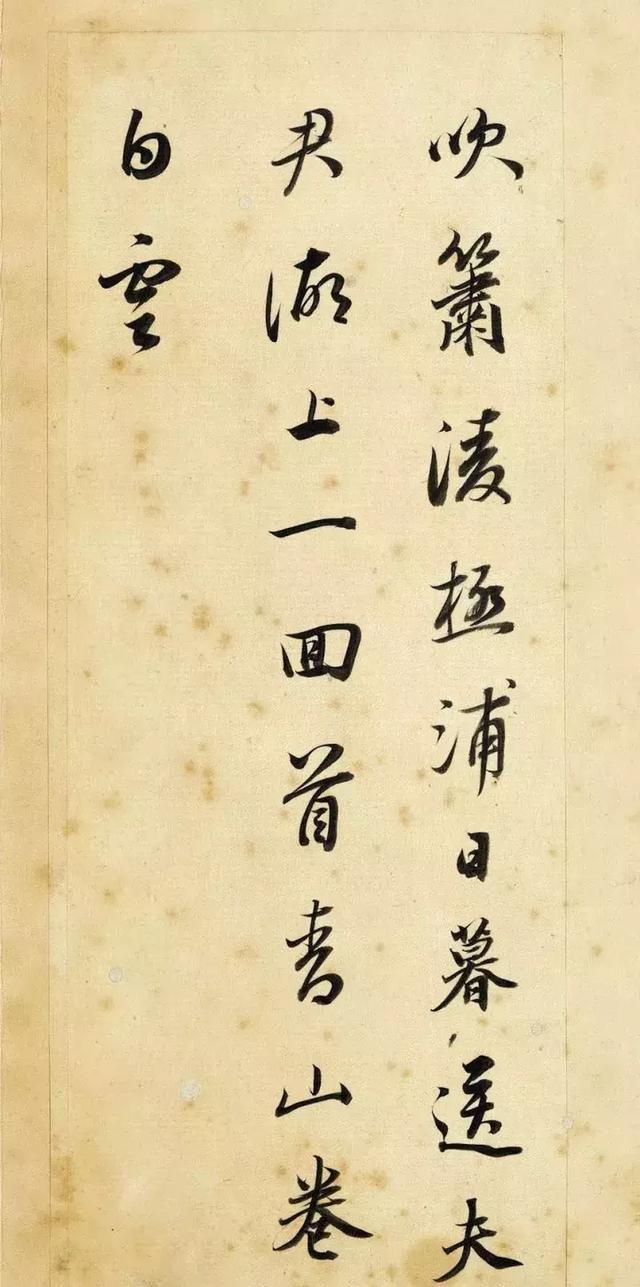 吹簫淩極浦日暮送夫
君湖上一回首青山卷
白雲